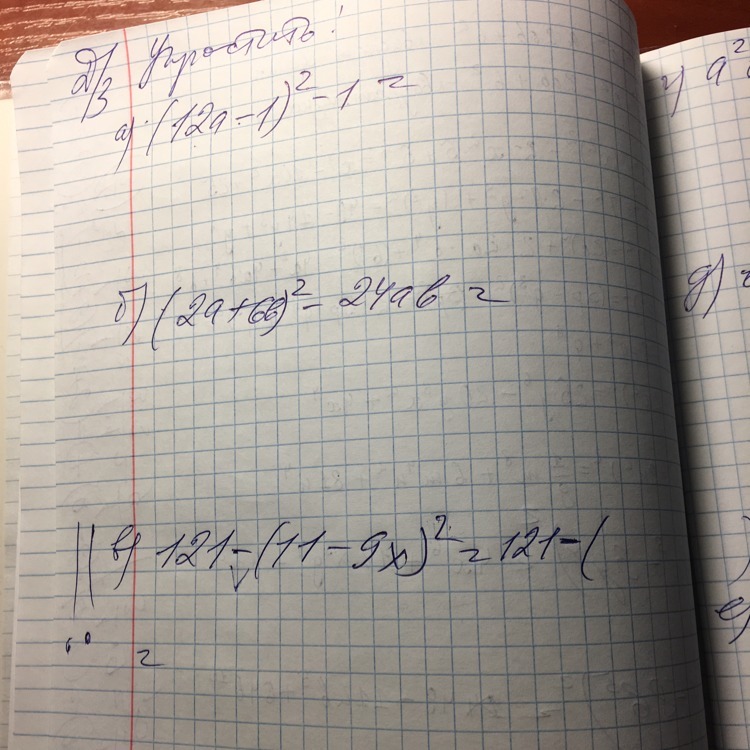 Д/З Упростить!
а) (12a-1)² - 1 =
б) (2a+6b)² - 24ab =
в) 121-(11-9x)² = 121-(
=
г) a²
д)
е)